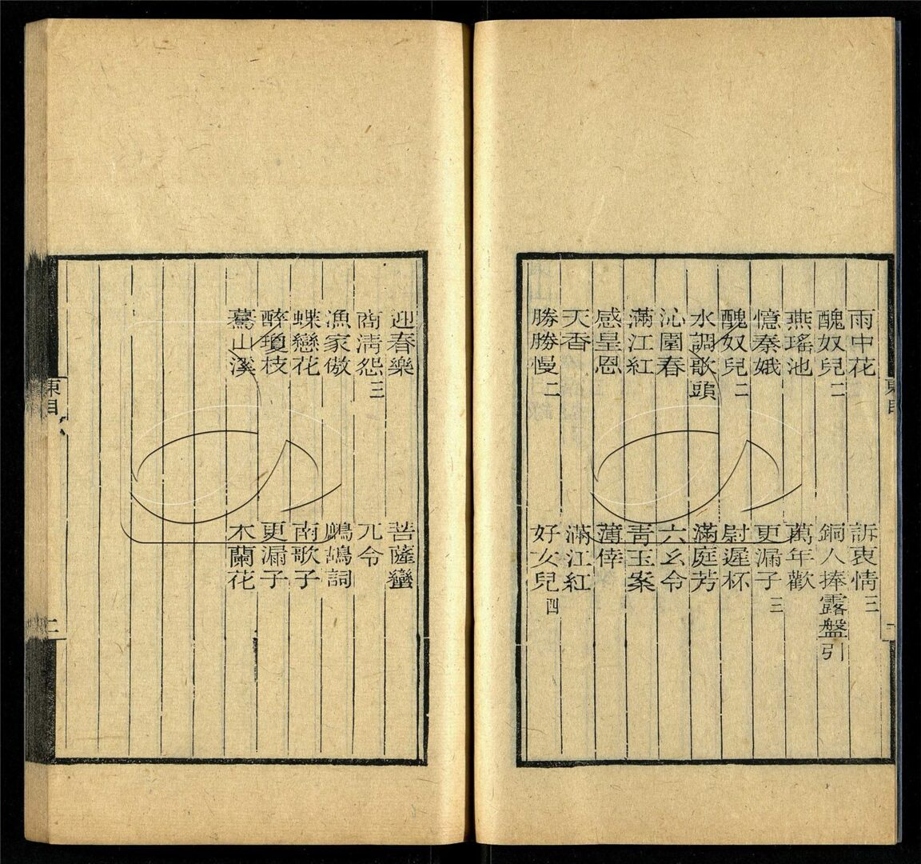 雨中花　訴衷情三
醜奴兒二　銅人捧露盤引
燕瑤池　萬年歡
憶秦娥　更漏子三
醜奴兒二　尉遲杯
水調歌頭　滿庭芳
沁園春　六幺令
滿江紅　靑玉案
感皇恩　薄倖
天香　滿江紅
勝勝慢二　好女兒四
迎春樂　菩薩蠻
商淸怨三　兀令
漁家傲　鷓鴣詞
蝶戀花　南歌子
醉瓊枝　更漏子
驀山溪　木蘭花
東目　二